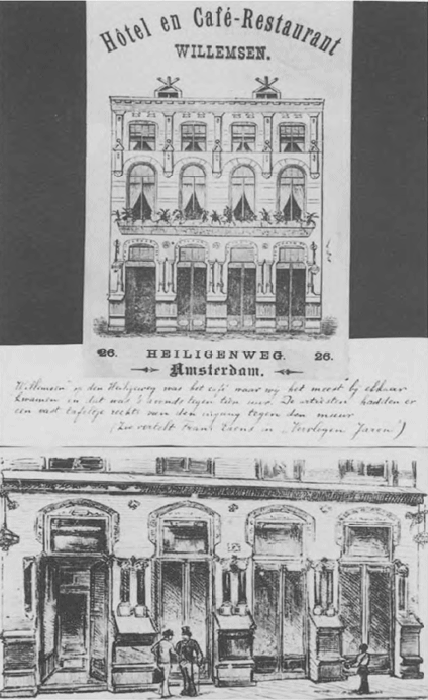 Hôtel en Café-Restaurant
WILLEMSEN.
26. HEILIGENWEG. 26.
Amsterdam.
Willemsen op den Heiligeweg was het café waar wij het meest bij elkaar
kwamen en dat was 's avonds tegen tien uur. De artiesten hadden er
een vast tafeltje rechts van den ingang tegen den muur
(Zoo vertelt Frans Erens in „Vervlogen Jaren")